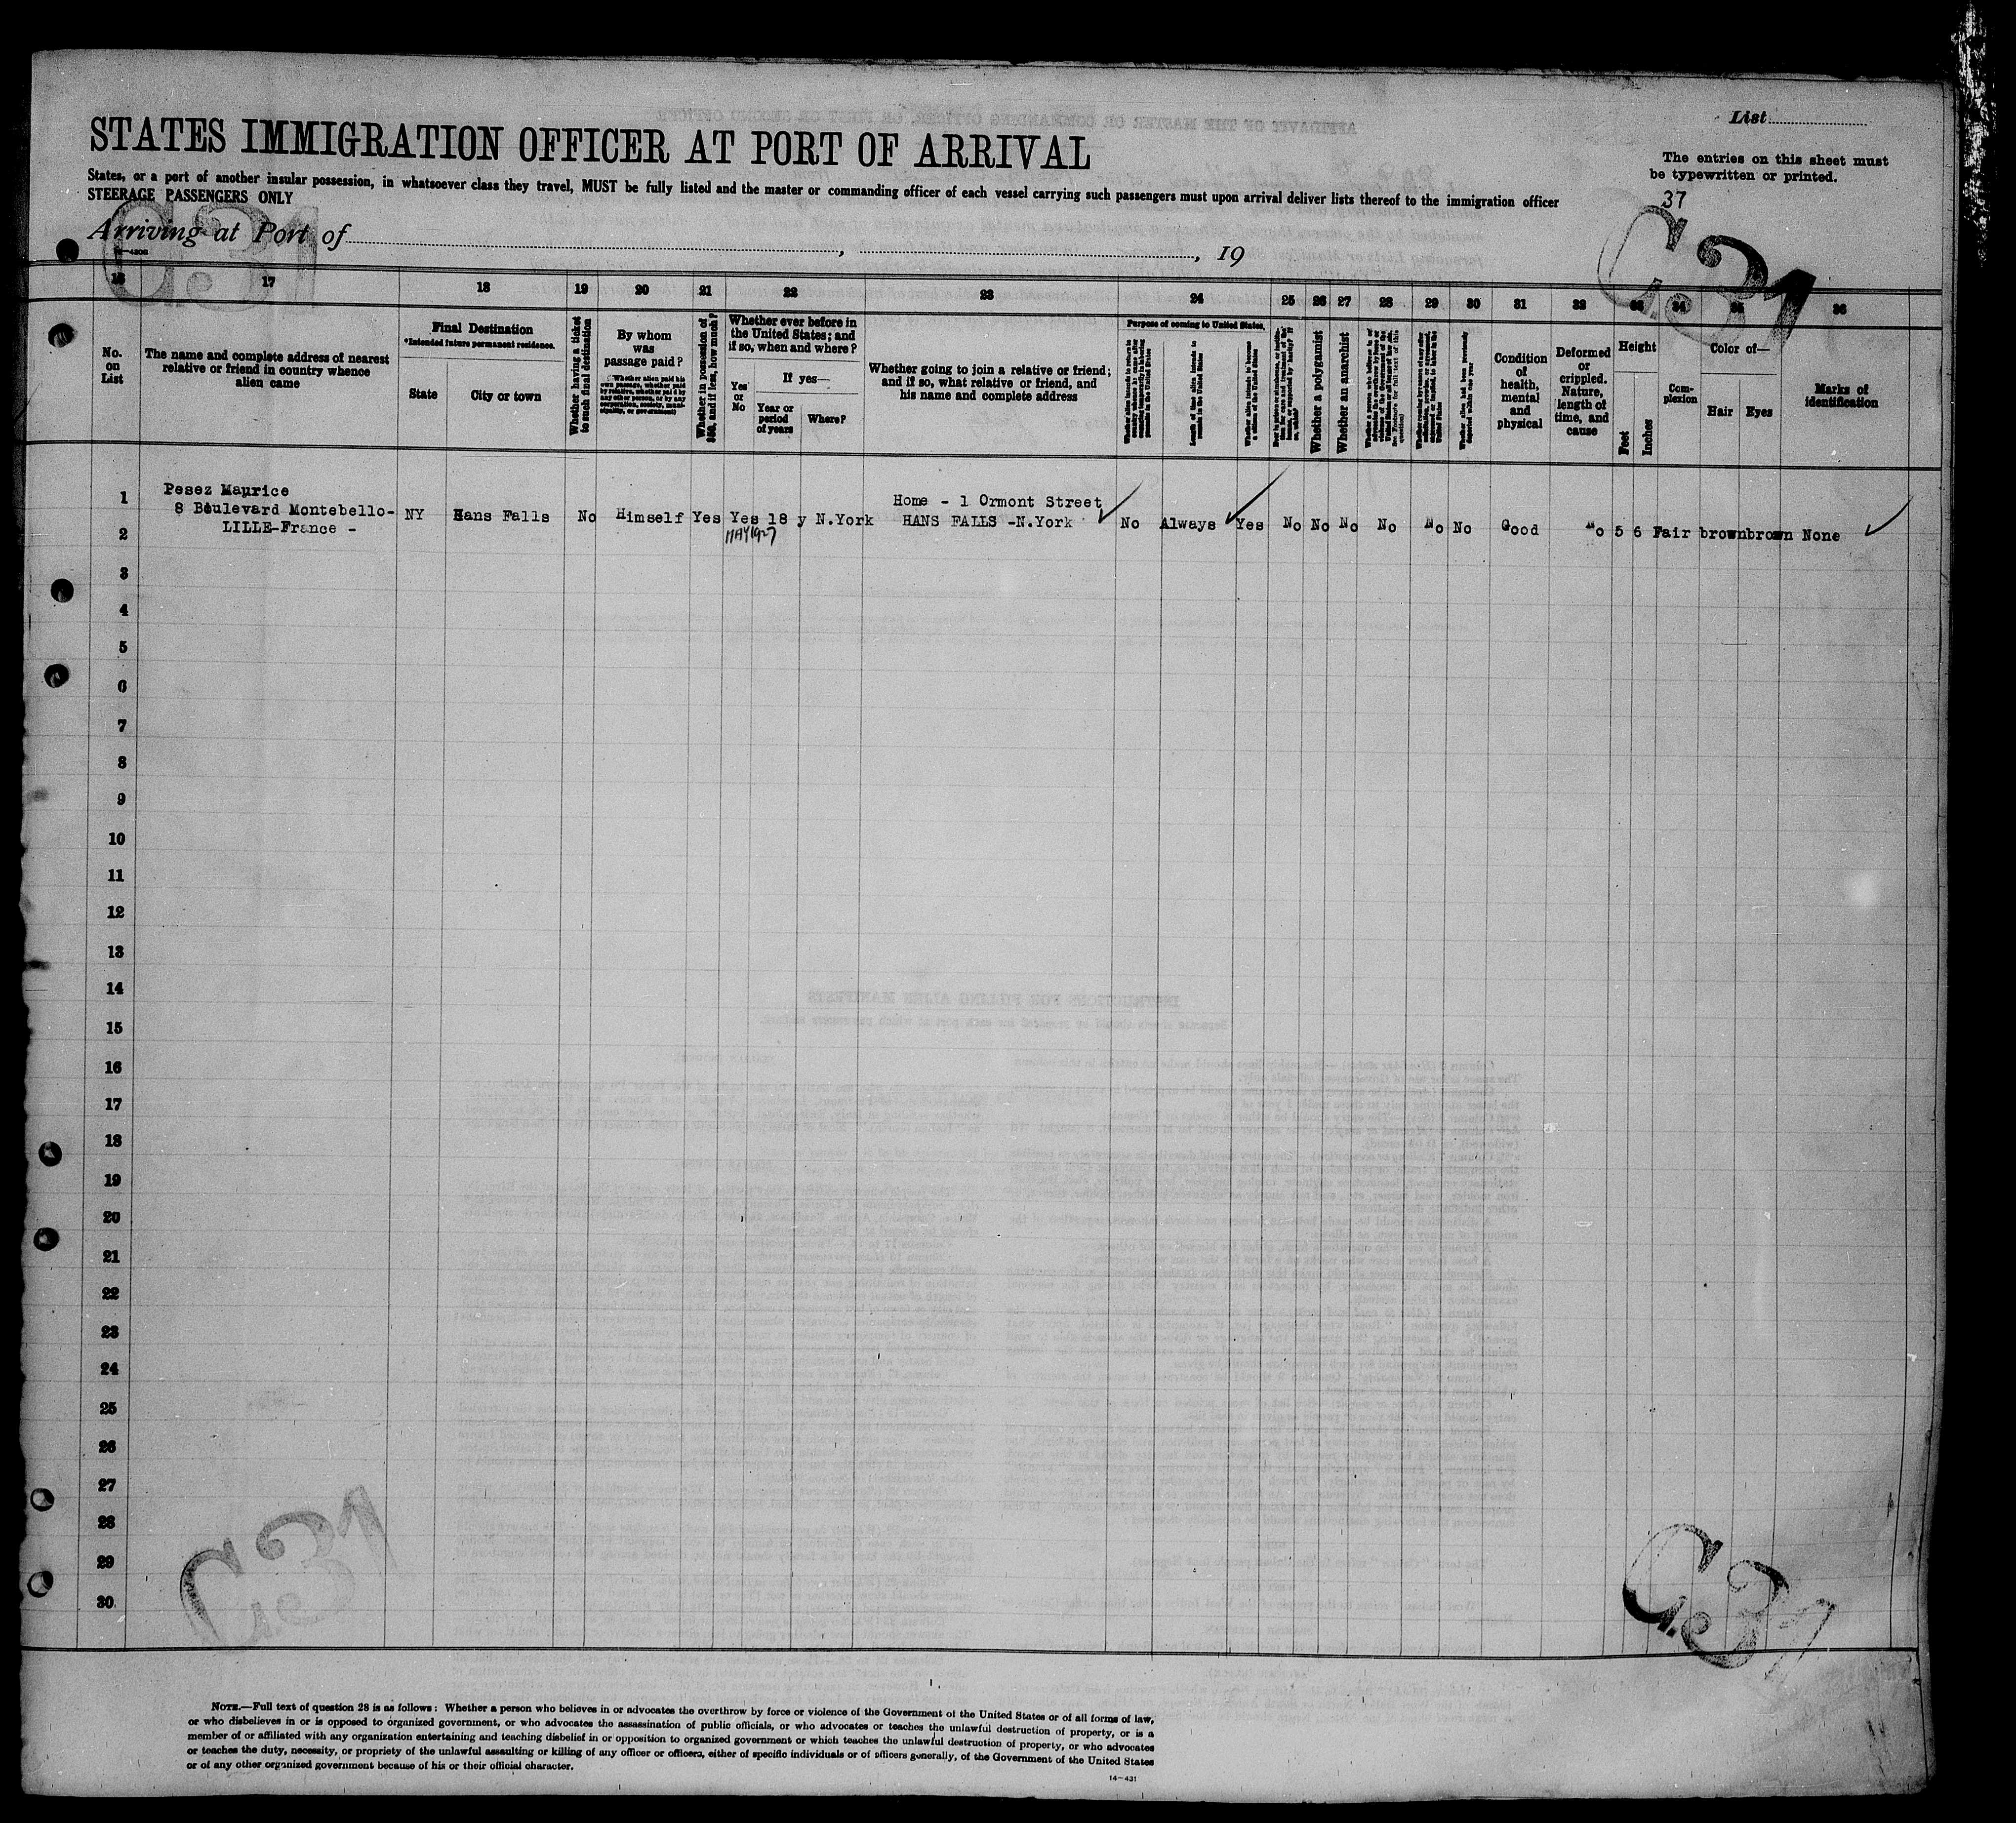 List
STATES IMMIGRATION OFFICER AT PORT OF ARRIVAL
The entries on this sheet must
be typewritten or printed.
States, or a port of another insular possession, in whatsoever class they travel, MUST be fully listed and the master or commanding officer of each vessel carrying such passengers must upon arrival deliver lists thereof to the immigration officer
STEERAGE PASSENGERS ONLY
37
C.31
C.31
Arriving at Port of , , 19
16 17 18 19 20 21 22 23 24 25 26 27 28 29 30 31 32 33 34 35 36
No.
on
List
The name and complete address of nearest
relative or friend in country whence
alien came
Final Destination
*Intended future permanent residence.
State
City or town
Whether having a ticket
to such final destination
By whom
was
passage paid?
Whether alien paid his
own passage, whether paid
by relative, whether paid by
any other person, or by any
corporation, society, muni-
cipality, or government
Whether in possession of
$50, and if less, how much?
Whether ever before in
the United States; and
if so, when and where?
Yes
or
No
If yes—
Year or
period
of years
Where?
Whether going to join a relative or friend;
and if so, what relative or friend, and
his name and complete address
Purpose of coming to United States.
Length of time alien intends to
remain in the United States
Whether alien intends to become
a citizen of the United States
Whether a polygamist
Whether an anarchist
Whether alien had been previously
deported within one year
Condition
of
health,
mental
and
physical
Deformed
or
crippled.
Nature,
length of
time, and
cause
Height
Feet
Inches
Com-
plexion
Color of—
Hair
Eyes
Marks of
identification
1
Pesez Maurice
8 Boulevard Montebello-
LILLE-France -
NY Hans Falls No Himself Yes Yes 18 y N.York
MAY 1927
Home - 1 Ormont Street
HANS FALLS -N.York
No Always Yes No No No No No No Good No 5 6 Fair brown brown None
2
3
4
5
6
7
8
9
10
11
12
13
14
15
16
17
18
19
20
21
22
23
24
25
26
27
28
29
30
C.31
C.31
NOTE.—Full text of question 28 is as follows: Whether a person who believes in or advocates the overthrow by force or violence of the Government of the United States or of all forms of law,
or who disbelieves in or is opposed to organized government, or who advocates the assassination of public officials, or who advocates or teaches the unlawful destruction of property, or is a
member of or affiliated with any organization entertaining and teaching disbelief in or opposition to organized government or which teaches the unlawful destruction of property, or who advocates
or teaches the duty, necessity, or propriety of the unlawful assaulting or killing of any officer or officers, either of specific individuals or of officers generally, of the Government of the United States
or of any other organized government because of his or their official character.
14—431